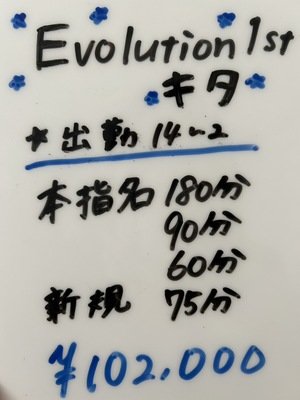 Evolution 1st
キタ
★出勤 14~2
本指名 180分
90分
60分
新規 75分
¥102,000